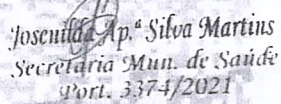 Josenilda Ap.ª Silva Martins
Secretaria Mun. de Saúde
Port. 3374/2021